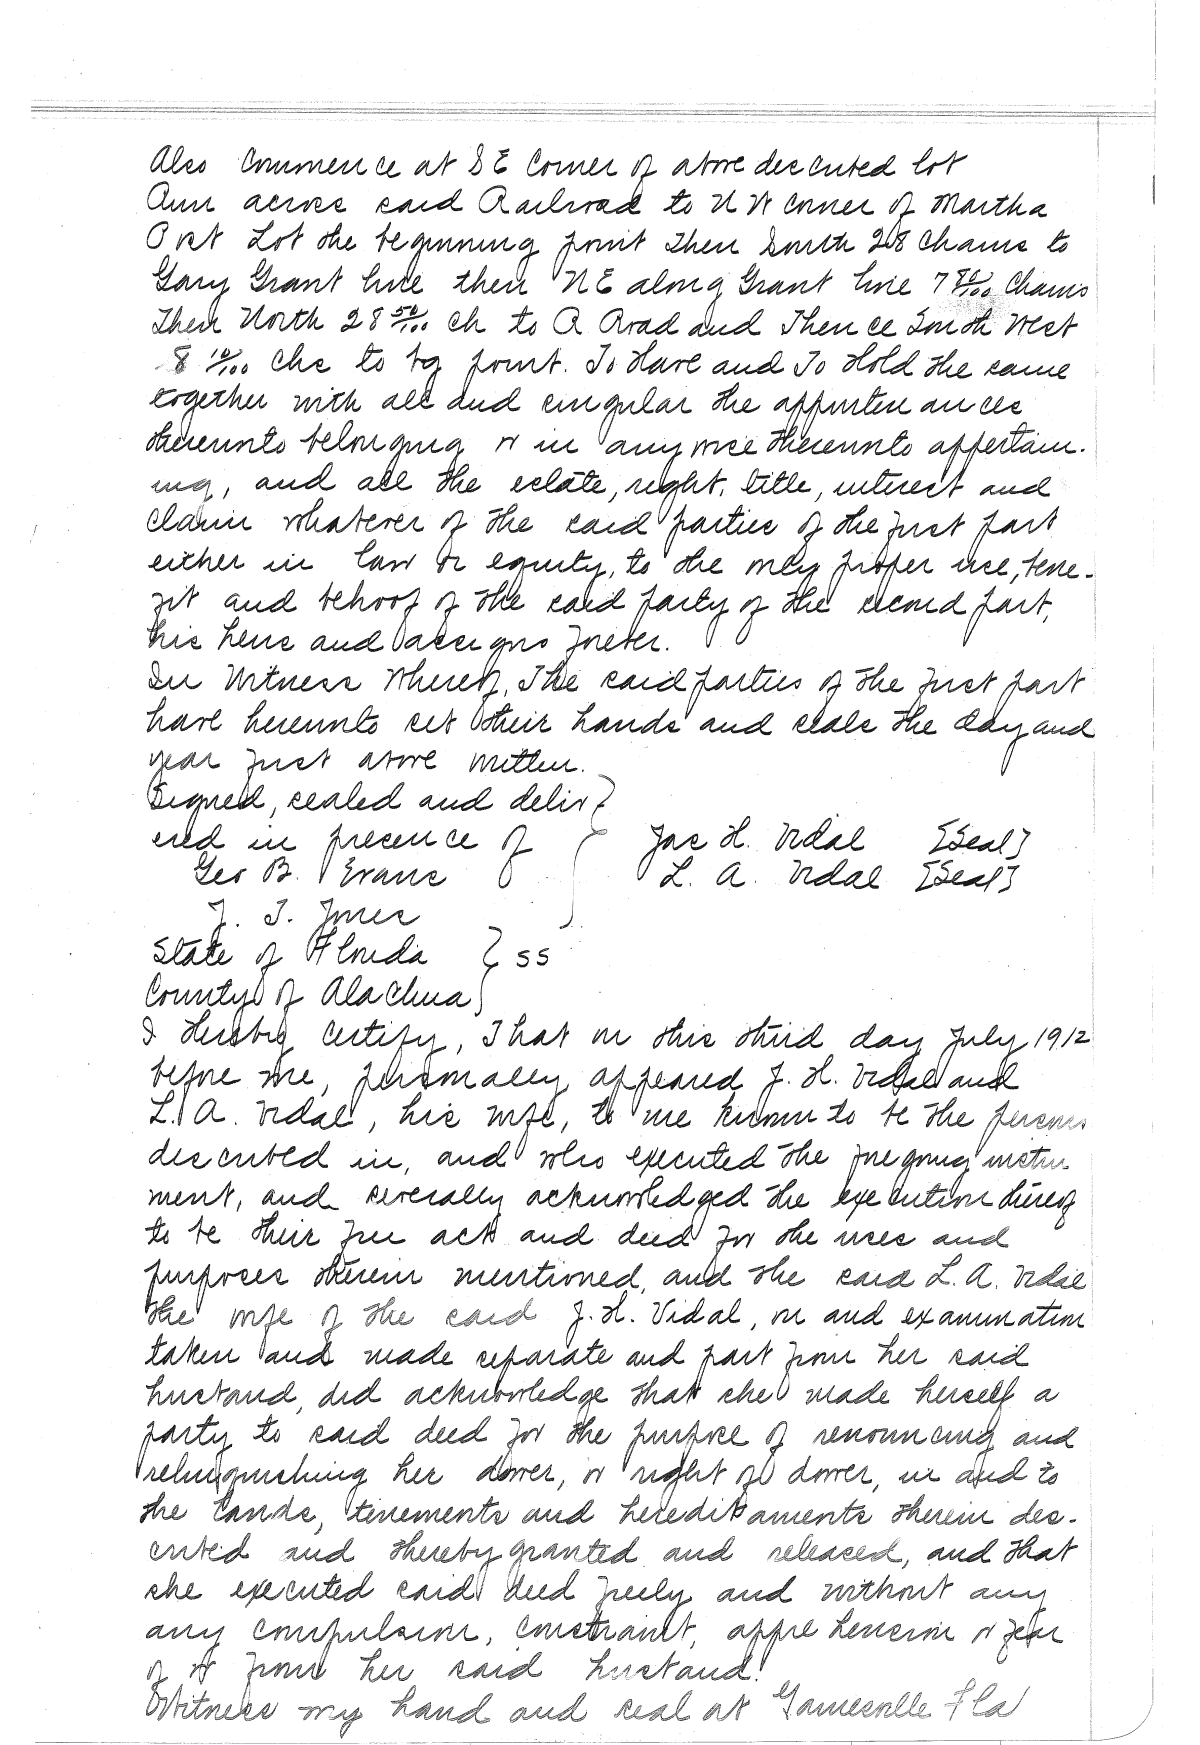 Also Commence at S E Corner of above described lot
Run across said Railroad to N W Corner of Martha
Post Lot the beginning point Then South 28 Chains to
Gary Grant line then N E along Grant line 7 80/100 Chains
Then North 28 50/100 ch to R Road and Thence South West
8 10/100 Chs to bg point. To Have and To Hold the same
together with all and singular the appurtenances
thereunto belonging or in anywise thereunto appertain-
ing, and all the estate, right, title, interest and
Claim whatever of the said parties of the first part
either in law or equity, to the only proper use, bene-
fit and behoof of the said party of the second part,
his heirs and assigns forever.
In Witness Whereof, The said parties of the first part
have hereunto set their hands and seals the day and
year first above written.
Signed, sealed and deliv
ered in presence of Jas H. Vidal [Seal]
Geo B. Evans L. A. Vidal [Seal]
J. T. Jones
State of Florida } ss
County of Alachua
I Hereby Certify, That on this third day July 1912
before me, personally appeared J. H. Vidal and
L. A. Vidal, his wife, to me known to be the persons
described in, and who executed the foregoing instru-
ment, and severally acknowledged the execution thereof
to be their free act and deed for the uses and
purposes therein mentioned, and the said L. A. Vidal
the wife of the said J. H. Vidal, on and examination
taken and made separate and part from her said
husband, did acknowledge that she made herself a
party to said deed for the purpose of renouncing and
relinquishing her dower, or right of dower, in and to
the lands, tenements and hereditaments therein des-
cribed and thereby granted and released, and that
she executed said deed freely and without any
any compulsion, constraint, apprehension or fear
of or from her said husband.
Witness my hand and seal at Gainesville Fla